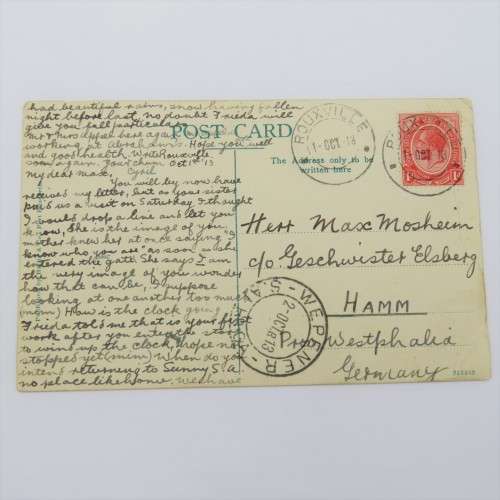 had beautiful rains, snow having fallen
night before last, no doubt Frieda will
give you full particulars.
Mr & Mrs Apper here again
working at Abrahams. Hope you well
and good health. Write
soon again. Your chum, Cyril
POST CARD
The Address only to be
written here
ROUXVILLE
1-OCT 13
ROUXVILLE
OCT 13
1d
Rouxville
Oct 1st 13
My dear Max,
You will by now have
received my letter, but as your sister
paid us a visit on Saturday I thought
I would drop a line and let you
know, She is the image of you,
mother knew her at once saying "I
know who you are" as soon as she
entered the gate. She says I am
the very image of you wonder
how that can be, I suppose
looking at one another too much
(mum) How is the clock going
Frieda told me that is your first
work after you enter the store
to wind up the clock, hope not
stopped yet (mum) When do you
intend returning to Sunny S.A.
no place like home. We have
Herr Max Mosheim
c/o Geschwister Elsberg
HAMM
Prov Westphalia
Germany
WEPENER
2-OCT 13